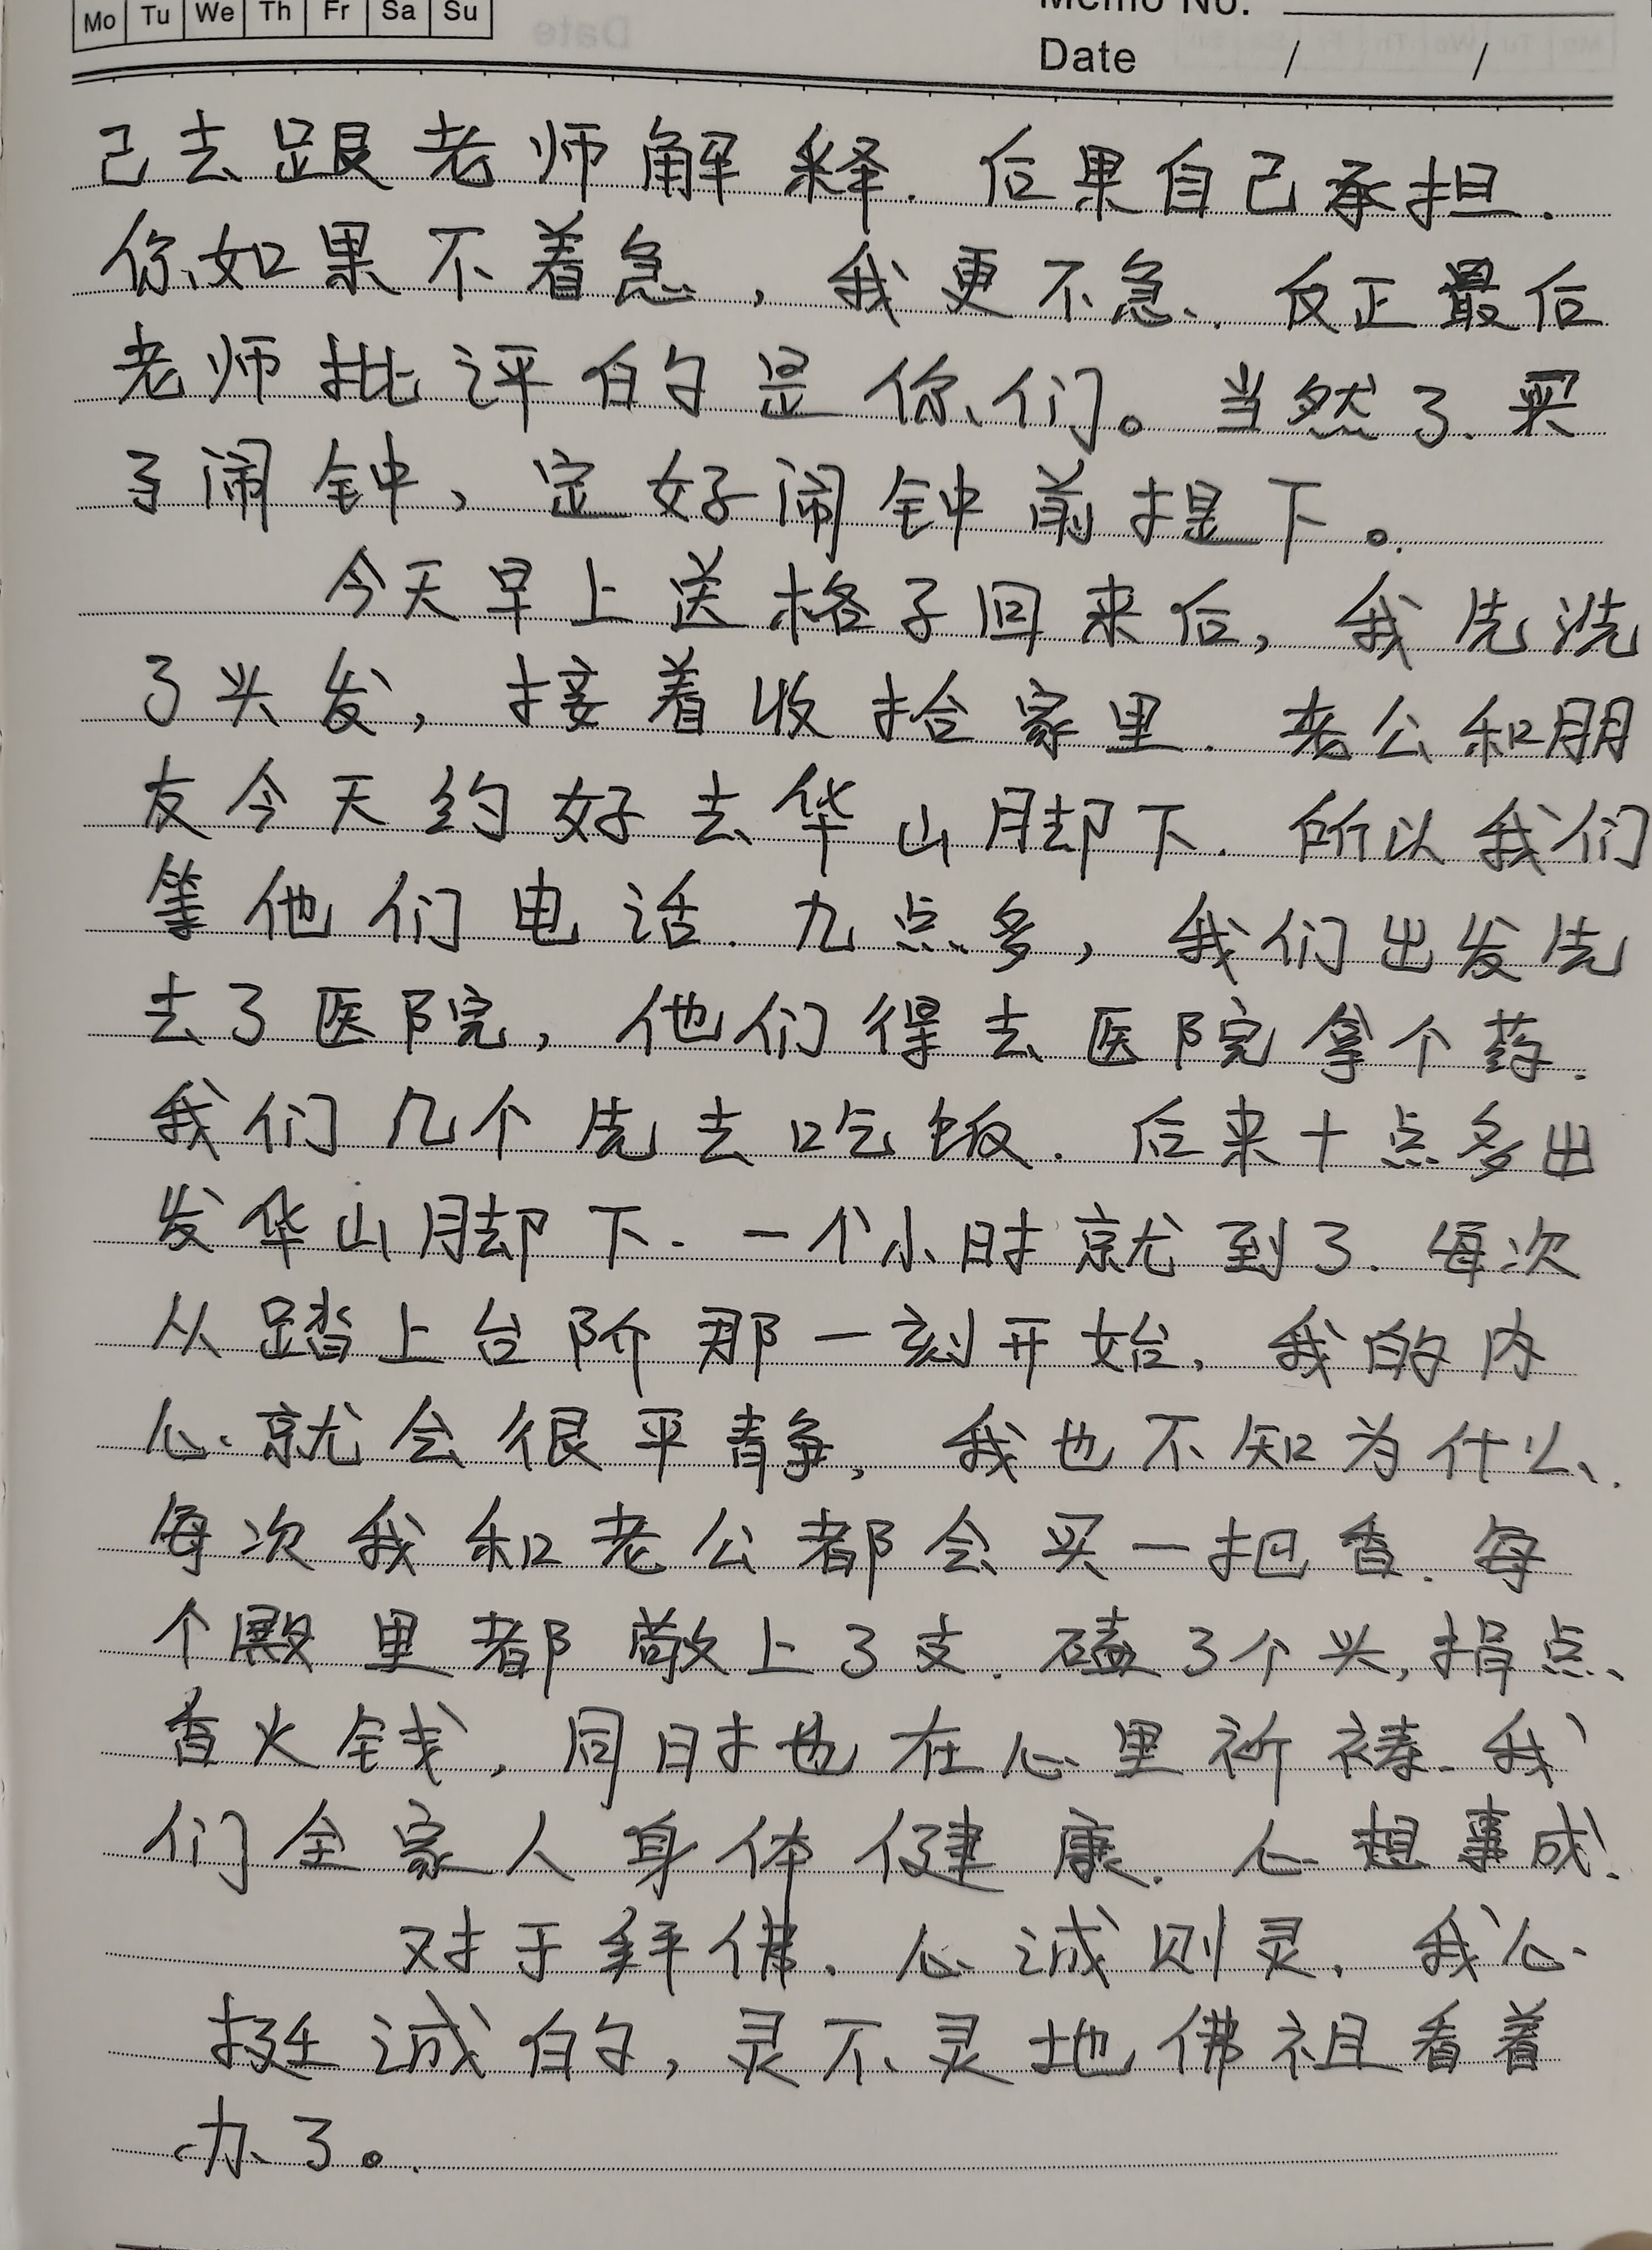 Mo Tu We Th Fr Sa Su
Memo No.
Date / /
己去跟老师解释.后果自己承担.
你如果不着急,我更不急.反正最后
老师批评的是你们。当然了.买
了闹钟、定好闹钟前提下。
今天早上送格子回来后,我先洗
了头发,接着收拾家里.老公和朋
友今天约好去华山脚下.所以我们
等他们电话.九点多,我们出发先
去了医院,他们得去医院拿个药.
我们几个先去吃饭.后来十点多出
发华山脚下.一个小时就到了.每次
从踏上台阶那一刻开始,我的内
心就会很平静,我也不知为什么.
每次我和老公都会买一把香.每
个殿里都敬上3支.磕3个头,捐点
香火钱,同时也在心里祈祷.我
们全家人身体健康.心想事成!
对于拜佛.心诚则灵.我心
挺诚的,灵不灵地佛祖看着
办了。